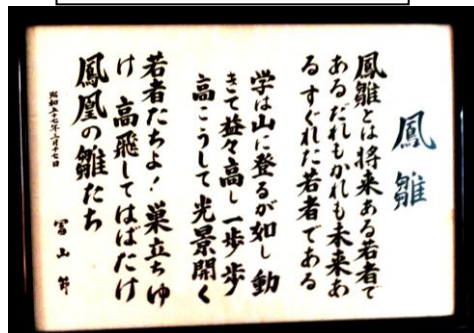 鳳雛
鳳雛とは将来ある若者で
あるだれもかれも未来あ
るすぐれた若者である
学は山に登るが如し 動
きて益々高し 一歩歩
高こうして光景開く
若者たちよ!巣立ちゆ
け 高飛してはばたけ
鳳凰の雛たち
昭和五十七年三月十七日
富山節